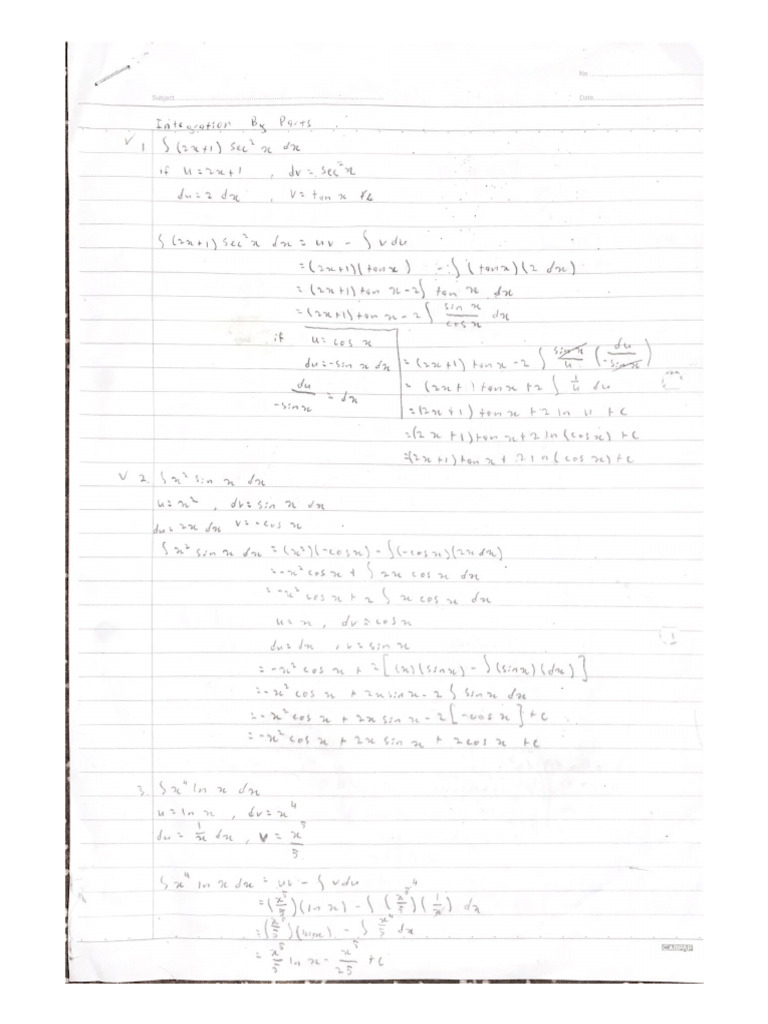 No
Subject
Date
Integration By Parts
√ 1. ∫(2x+1) sec² x dx
if u=2x+1 , dv= sec²x
du=2 dx , v=tan x
∫(2x+1) sec²x dx = uv - ∫ v du
=(2x+1)(tan x) - ∫(tan x)(2 dx)
= (2x+1) tan x - 2∫ tan x dx
= (2x+1) tan x - 2∫ sin x/cos x dx
if u= cos x
du=-sin x dx = (2x+1) tan x - 2 ∫ sin x/u (du/-sin x)
du/-sin x = dx = (2x+1) tan x + 2 ∫ 1/u du
=(2x+1) tan x + 2 ln u + c
=(2x+1) tan x + 2 ln(cos x) + c
=(2x+1) tan x + 2 ln(cos x) + c
√ 2. ∫x² sin x dx
u=x² , dv=sin x dx
du=2x dx v=-cos x
∫x² sin x dx = (x²)(-cos x) - ∫(-cos x)(2x dx)
=-x² cos x + ∫ 2x cos x dx
=-x² cos x + 2 ∫ x cos x dx
u=x , dv=cos x
du=dx , v=sin x
=-x² cos x + 2[(x)(sin x) - ∫(sin x)(dx)]
=-x² cos x + 2x sin x - 2 ∫ sin x dx
=-x² cos x + 2x sin x - 2[-cos x] + c
=-x² cos x + 2x sin x + 2cos x + c
3. ∫x⁴ ln x dx
u=ln x , dv=x⁴
du= 1/x dx , v= x⁵/5
∫x⁴ ln x dx = uv - ∫ v du
=(x⁵/5)(ln x) - ∫(x⁵/5)(1/x) dx
=(x⁵/5)(ln x) - ∫ x⁴/5 dx
= x⁵/5 ln x - x⁵/25 + c